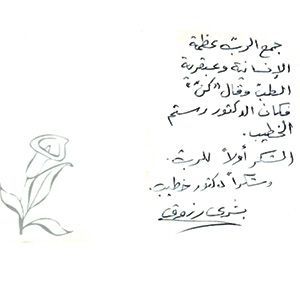 جمع الربّ عظمة
الإنسانية وعبقرية
الطبّ وقال "كنْ"
فكان الدكتور رستم
الخطيب.
الشكر أولاً للربّ.
وشكراً دكتور خطيب.
بشرى رزوق